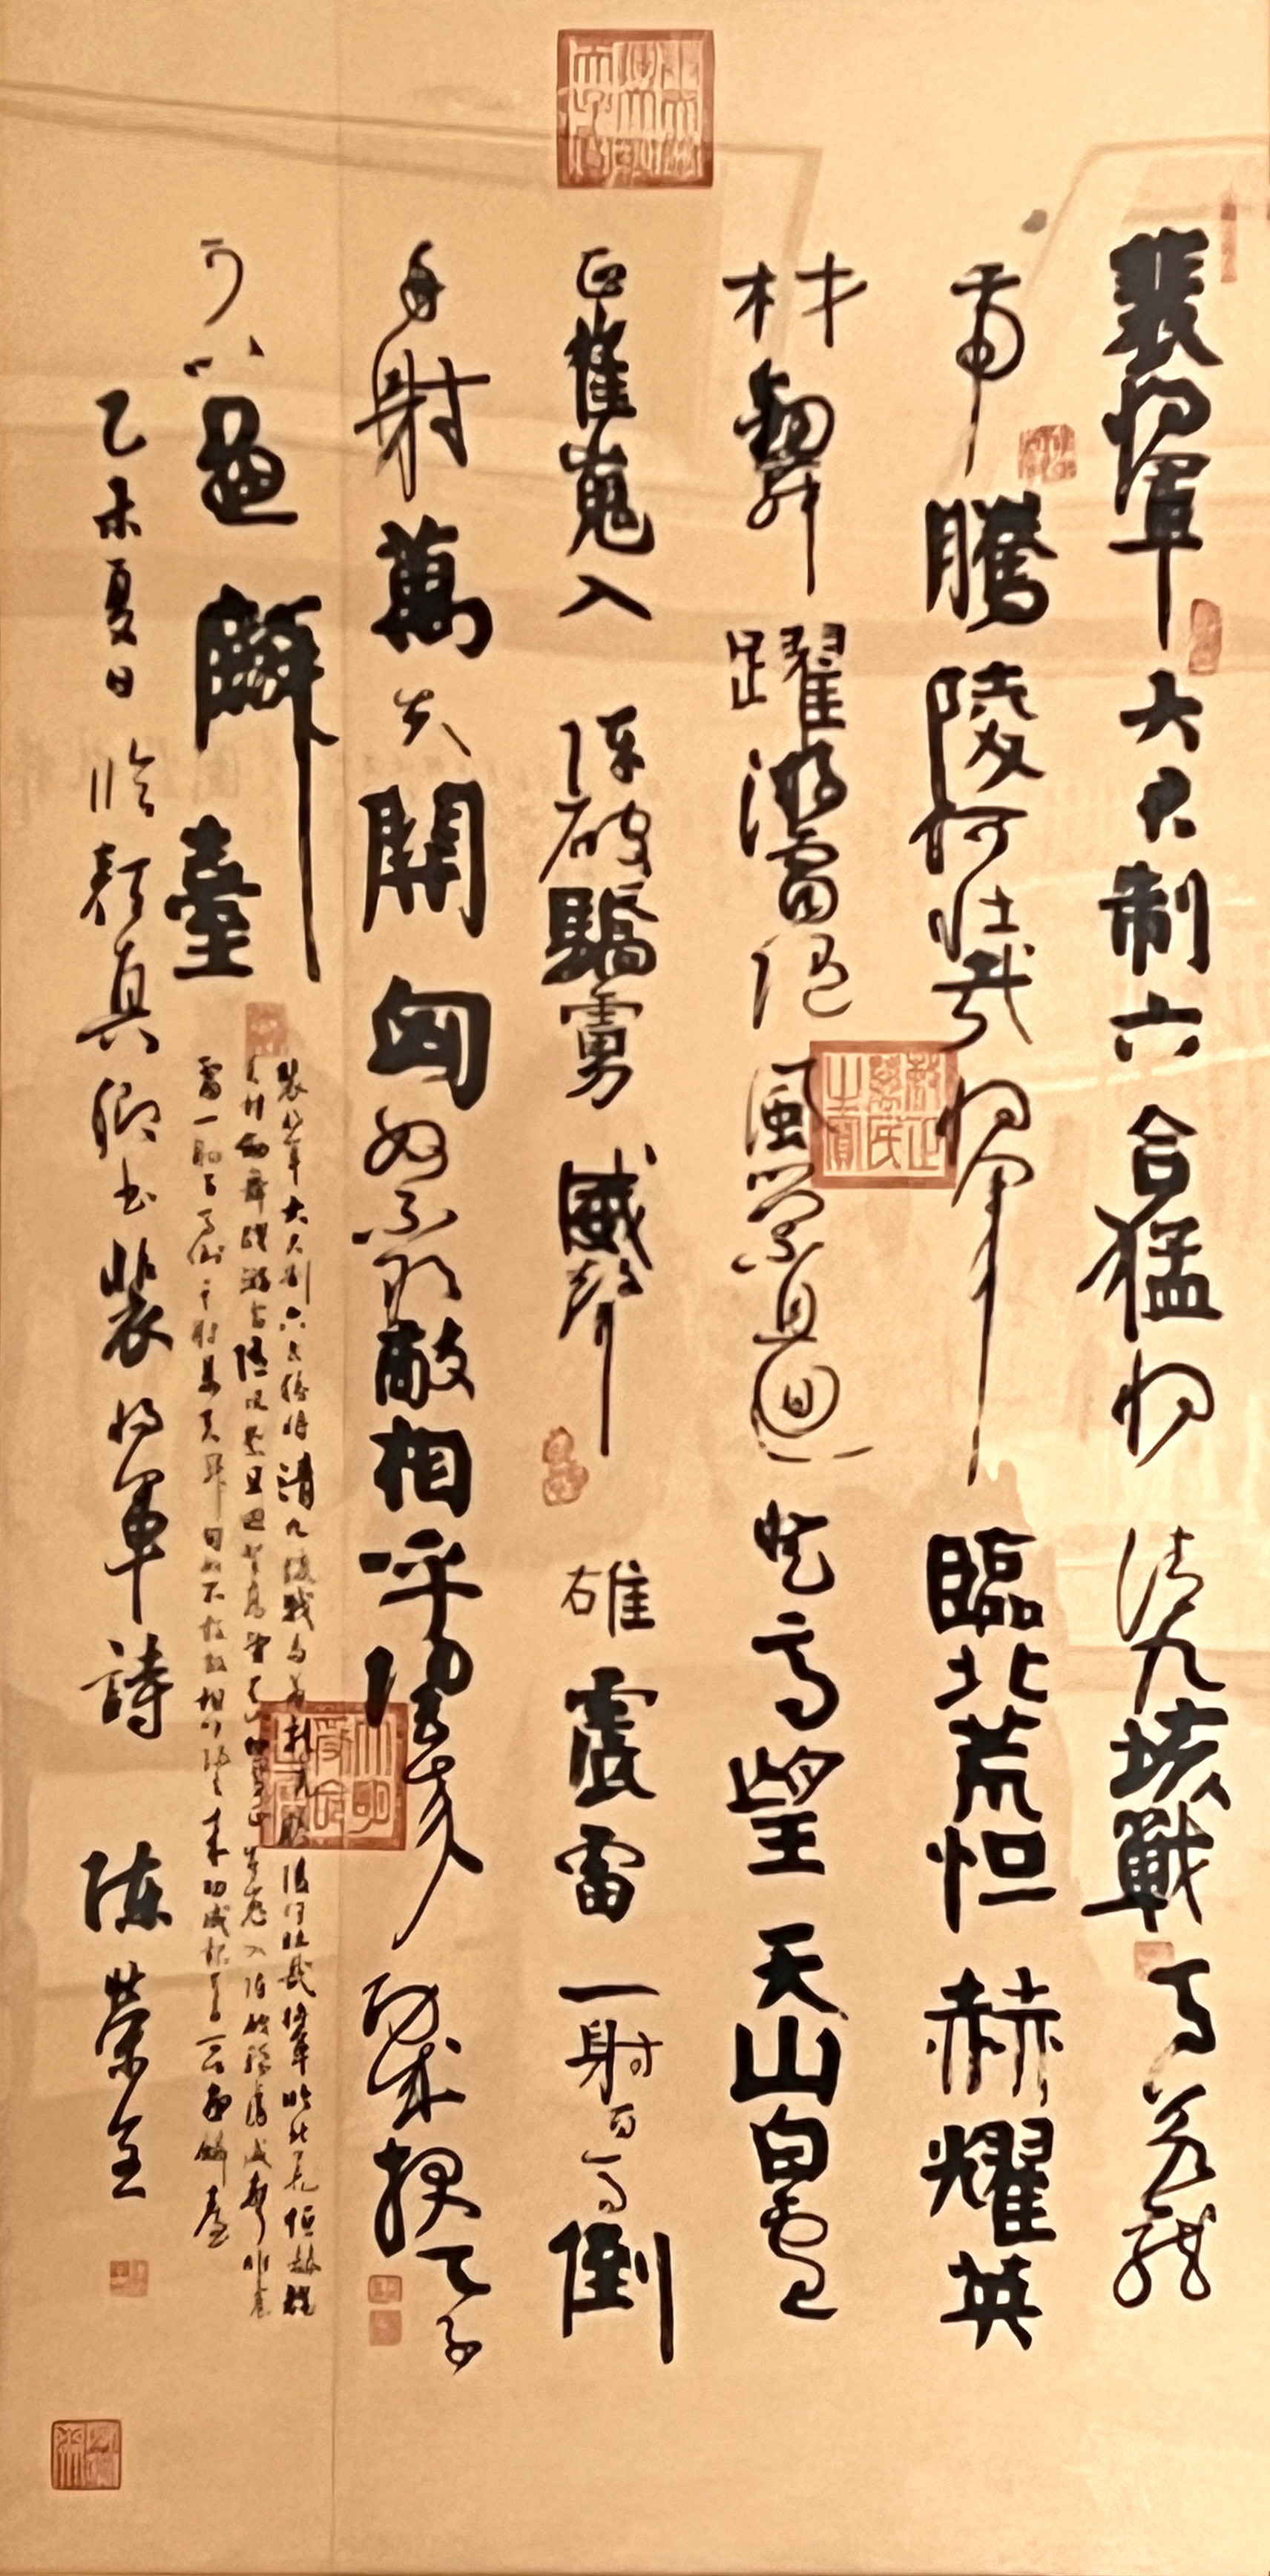 裴將軍大君制六合猛將清九垓戰馬若龍
虎騰陵何壯哉將軍臨北荒烜赫耀英
材劍舞躍游雷隨風縈且迴登高望天山白雲
正崔嵬入陣破驕虜威聲雄震雷一射百馬倒
再射萬夫開匈奴不敢敵相呼歸去來功成報天子
可以畫麟臺
裴將軍大君制六合猛將清九垓戰馬若龍虎騰陵何壯哉將軍臨北荒烜赫耀
英材劍舞躍游雷隨風縈且迴登高望天山白雲正崔嵬入陣破驕虜威聲雄震
雷一射百馬倒再射萬夫開匈奴不敢敵相呼歸去來功成報天子可以畫麟臺
乙未夏日臨顏真卿書裴將軍詩 陳榮全